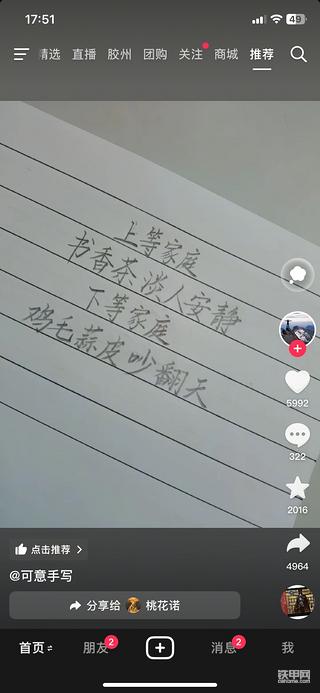 17:51
49
精选 直播 胶州 团购 关注 商城 推荐
上等家庭
书香茶淡人安静
下等家庭
鸡毛蒜皮吵翻天
5992
322
2016
4964
点击推荐
@可意手写
分享给 桃花诺
首页 朋友 2 消息 2 我
铁甲网
cehome.com